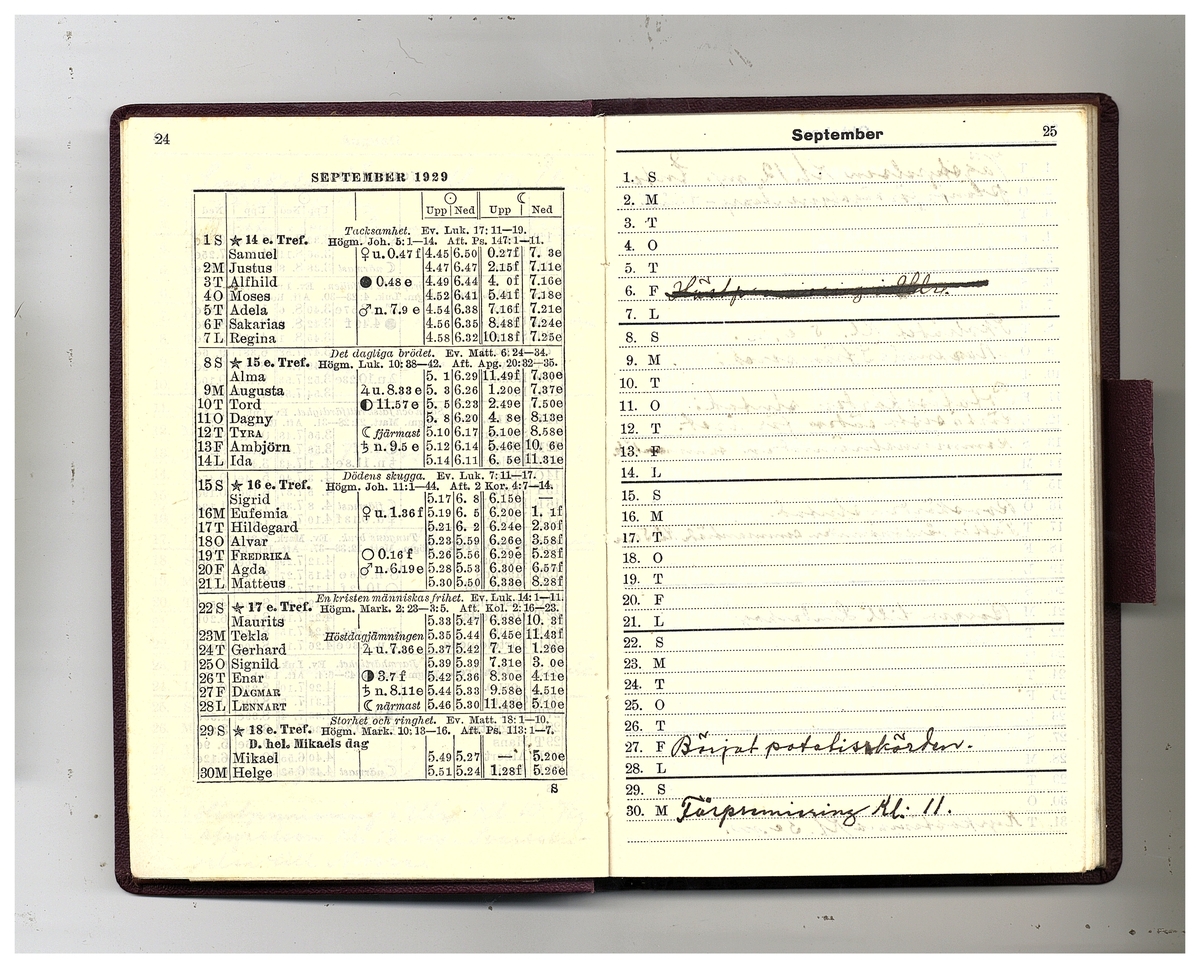 24
SEPTEMBER 1929
☉ ☾
Upp Ned Upp Ned
Tacksamhet. Ev. Luk. 17: 11—19.
1 S ★ 14 e. Tref. Högm. Joh. 5: 1—14. Aft. Ps. 147: 1—11.
Samuel ♀ u. 0.47 f 4.45 6.50 0.27f 7. 3e
2 M Justus 4.47 6.47 2.15f 7.11e
3 T Alfhild ● 0.48 e 4.49 6.44 4. 0f 7.16e
4 O Moses 4.52 6.41 5.41f 7.18e
5 T Adela ♂ n. 7.9 e 4.54 6.38 7.16f 7.21e
6 F Sakarias 4.56 6.35 8.48f 7.24e
7 L Regina 4.58 6.32 10.18f 7.25e
Det dagliga brödet. Ev. Matt. 6: 24—34.
8 S ★ 15 e. Tref. Högm. Luk. 10: 38—42. Aft. Apg. 20: 32—35.
Alma 5. 1 6.29 11.49f 7.30e
9 M Augusta ♃ u. 8.33 e 5. 3 6.26 1.20e 7.37e
10 T Tord ◐ 11.57 e 5. 5 6.23 2.49e 7.50e
11 O Dagny 5. 8 6.20 4. 8e 8.13e
12 T TYRA ☾ fjärmast 5.10 6.17 5.10e 8.58e
13 F Ambjörn ♄ n. 9.5 e 5.12 6.14 5.46e 10. 6e
14 L Ida 5.14 6.11 6. 5e 11.31e
Dödens skugga. Ev. Luk. 7: 11—17.
15 S ★ 16 e. Tref. Högm. Joh. 11: 1—44. Aft. 2 Kor. 4: 7—14.
Sigrid 5.17 6. 8 6.15e —
16 M Eufemia ♀ u. 1.36 f 5.19 6. 5 6.20e 1. 1f
17 T Hildegard 5.21 6. 2 6.24e 2.30f
18 O Alvar 5.23 5.59 6.26e 3.58f
19 T FREDRIKA ○ 0.16 f 5.26 5.56 6.29e 5.28f
20 F Agda ♂ n. 6.19 e 5.28 5.53 6.30e 6.57f
21 L Matteus 5.30 5.50 6.33e 8.28f
En kristen människas frihet. Ev. Luk. 14: 1—11.
22 S ★ 17 e. Tref. Högm. Mark. 2: 23—3: 5. Aft. Kol. 2: 16—23.
Maurits 5.33 5.47 6.38e 10. 3f
23 M Tekla Höstdagjämningen 5.35 5.44 6.45e 11.43f
24 T Gerhard ♃ u. 7.36 e 5.37 5.42 7. 1e 1.26e
25 O Signild 5.39 5.39 7.31e 3. 0e
26 T Enar ◑ 3.7 f 5.42 5.36 8.30e 4.11e
27 F DAGMAR ♄ n. 8.11 e 5.44 5.33 9.58e 4.51e
28 L LENNART ☾ närmast 5.46 5.30 11.43e 5.10e
Storhet och ringhet. Ev. Matt. 18: 1—10.
29 S ★ 18 e. Tref. Högm. Mark. 10: 13—16. Aft. Ps. 113: 1—7.
D. hel. Mikaels dag
Mikael 5.49 5.27 — 5.20e
30 M Helge 5.51 5.24 1.28f 5.26e
8
September 25
1. S
2. M
3. T
4. O
5. T
6. F
7. L
8. S
9. M
10. T
11. O
12. T
13. F
14. L
15. S
16. M
17. T
18. O
19. T
20. F
21. L
22. S
23. M
24. T
25. O
26. T
27. F Börjat potatisskörden.
28. L
29. S
30. M Förpremiering Kl. 11.